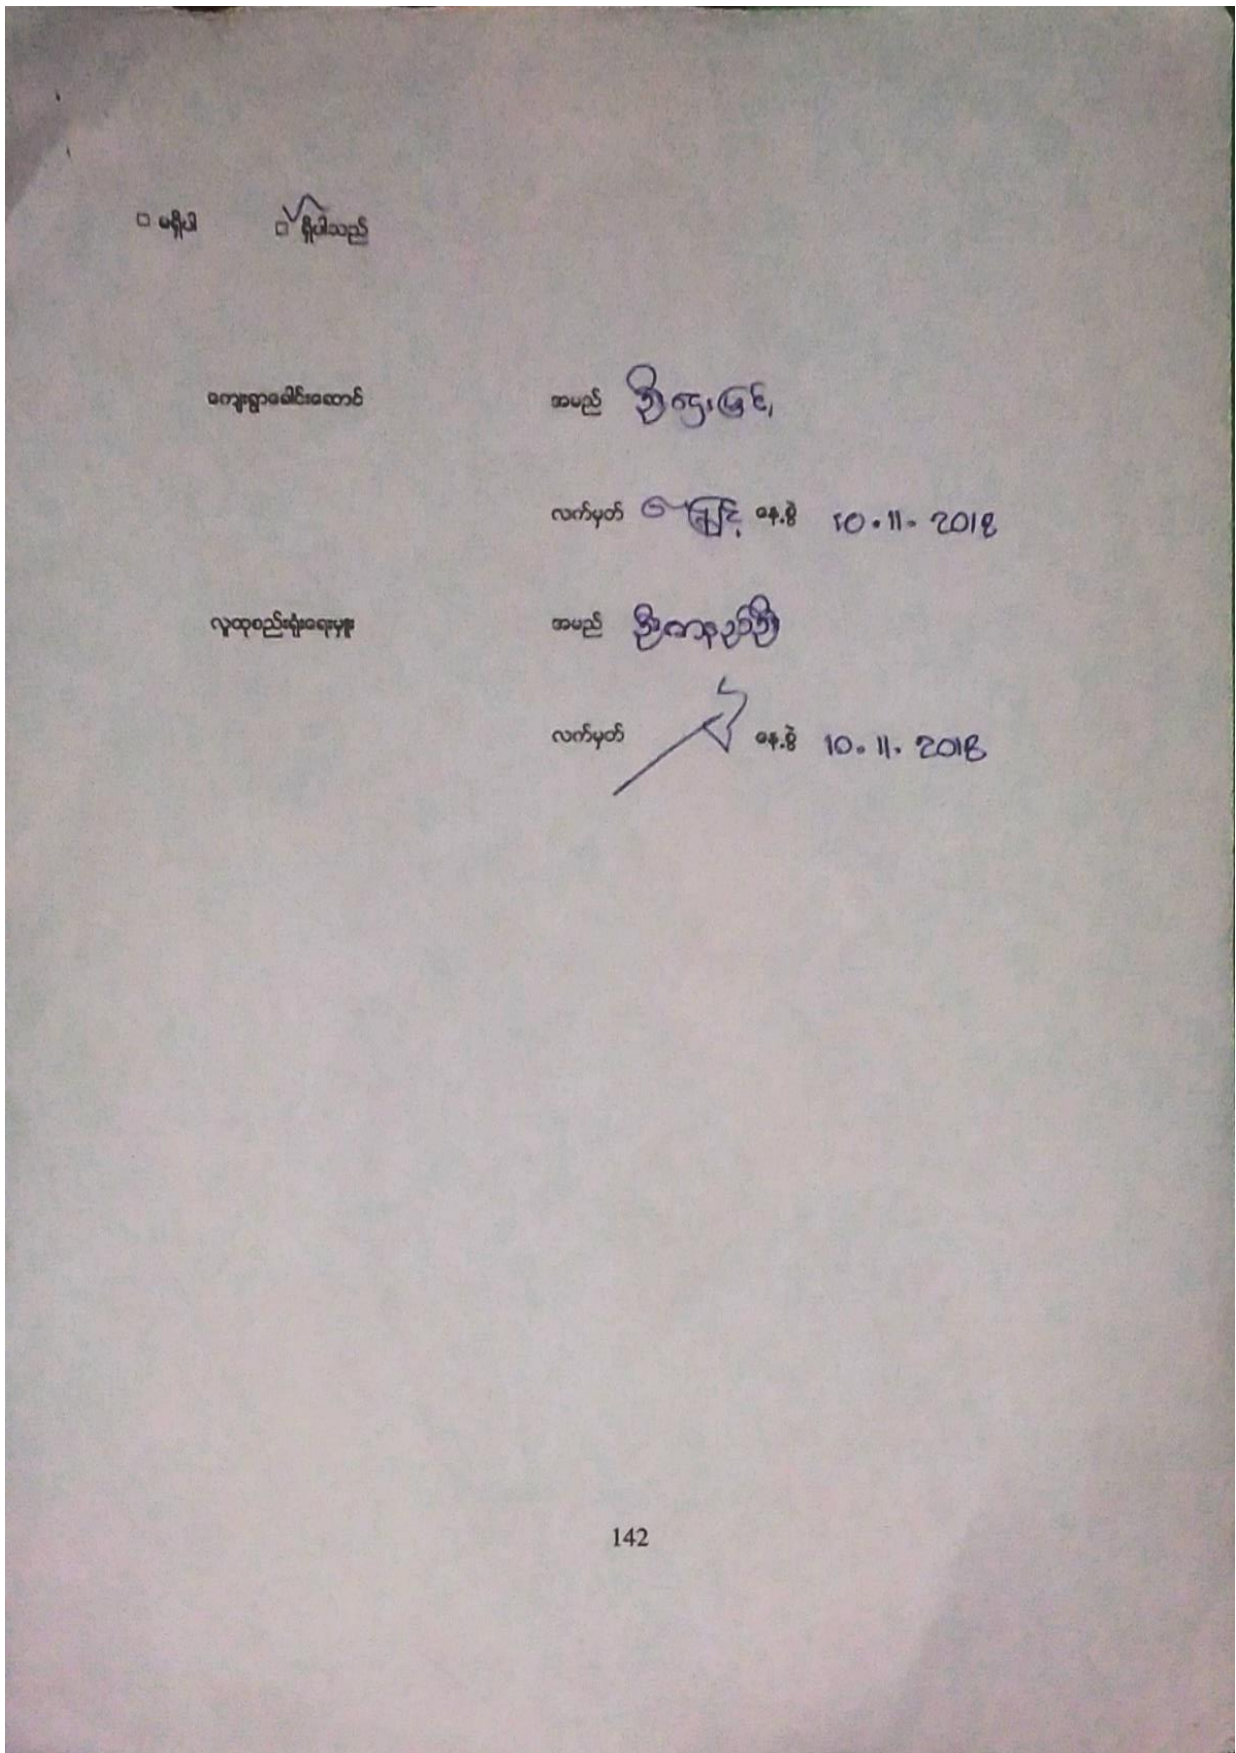 □ မရှိပါ □ ရှိပါသည်
ကျေးရွာခေါင်းဆောင် အမည် ဦးဌေးမြင့်
လက်မှတ် နေ့စွဲ 10.11.2018
လူထုစည်းရုံးရေးမှူး အမည်
လက်မှတ် နေ့စွဲ 10.11.2018
142